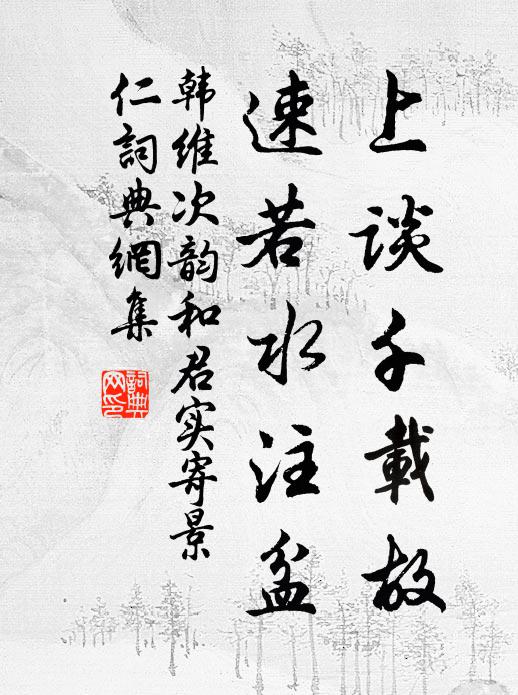 上談千載故
速若水注盆
韩維次韵和君实寄景
仁詞典網集
詞典网印